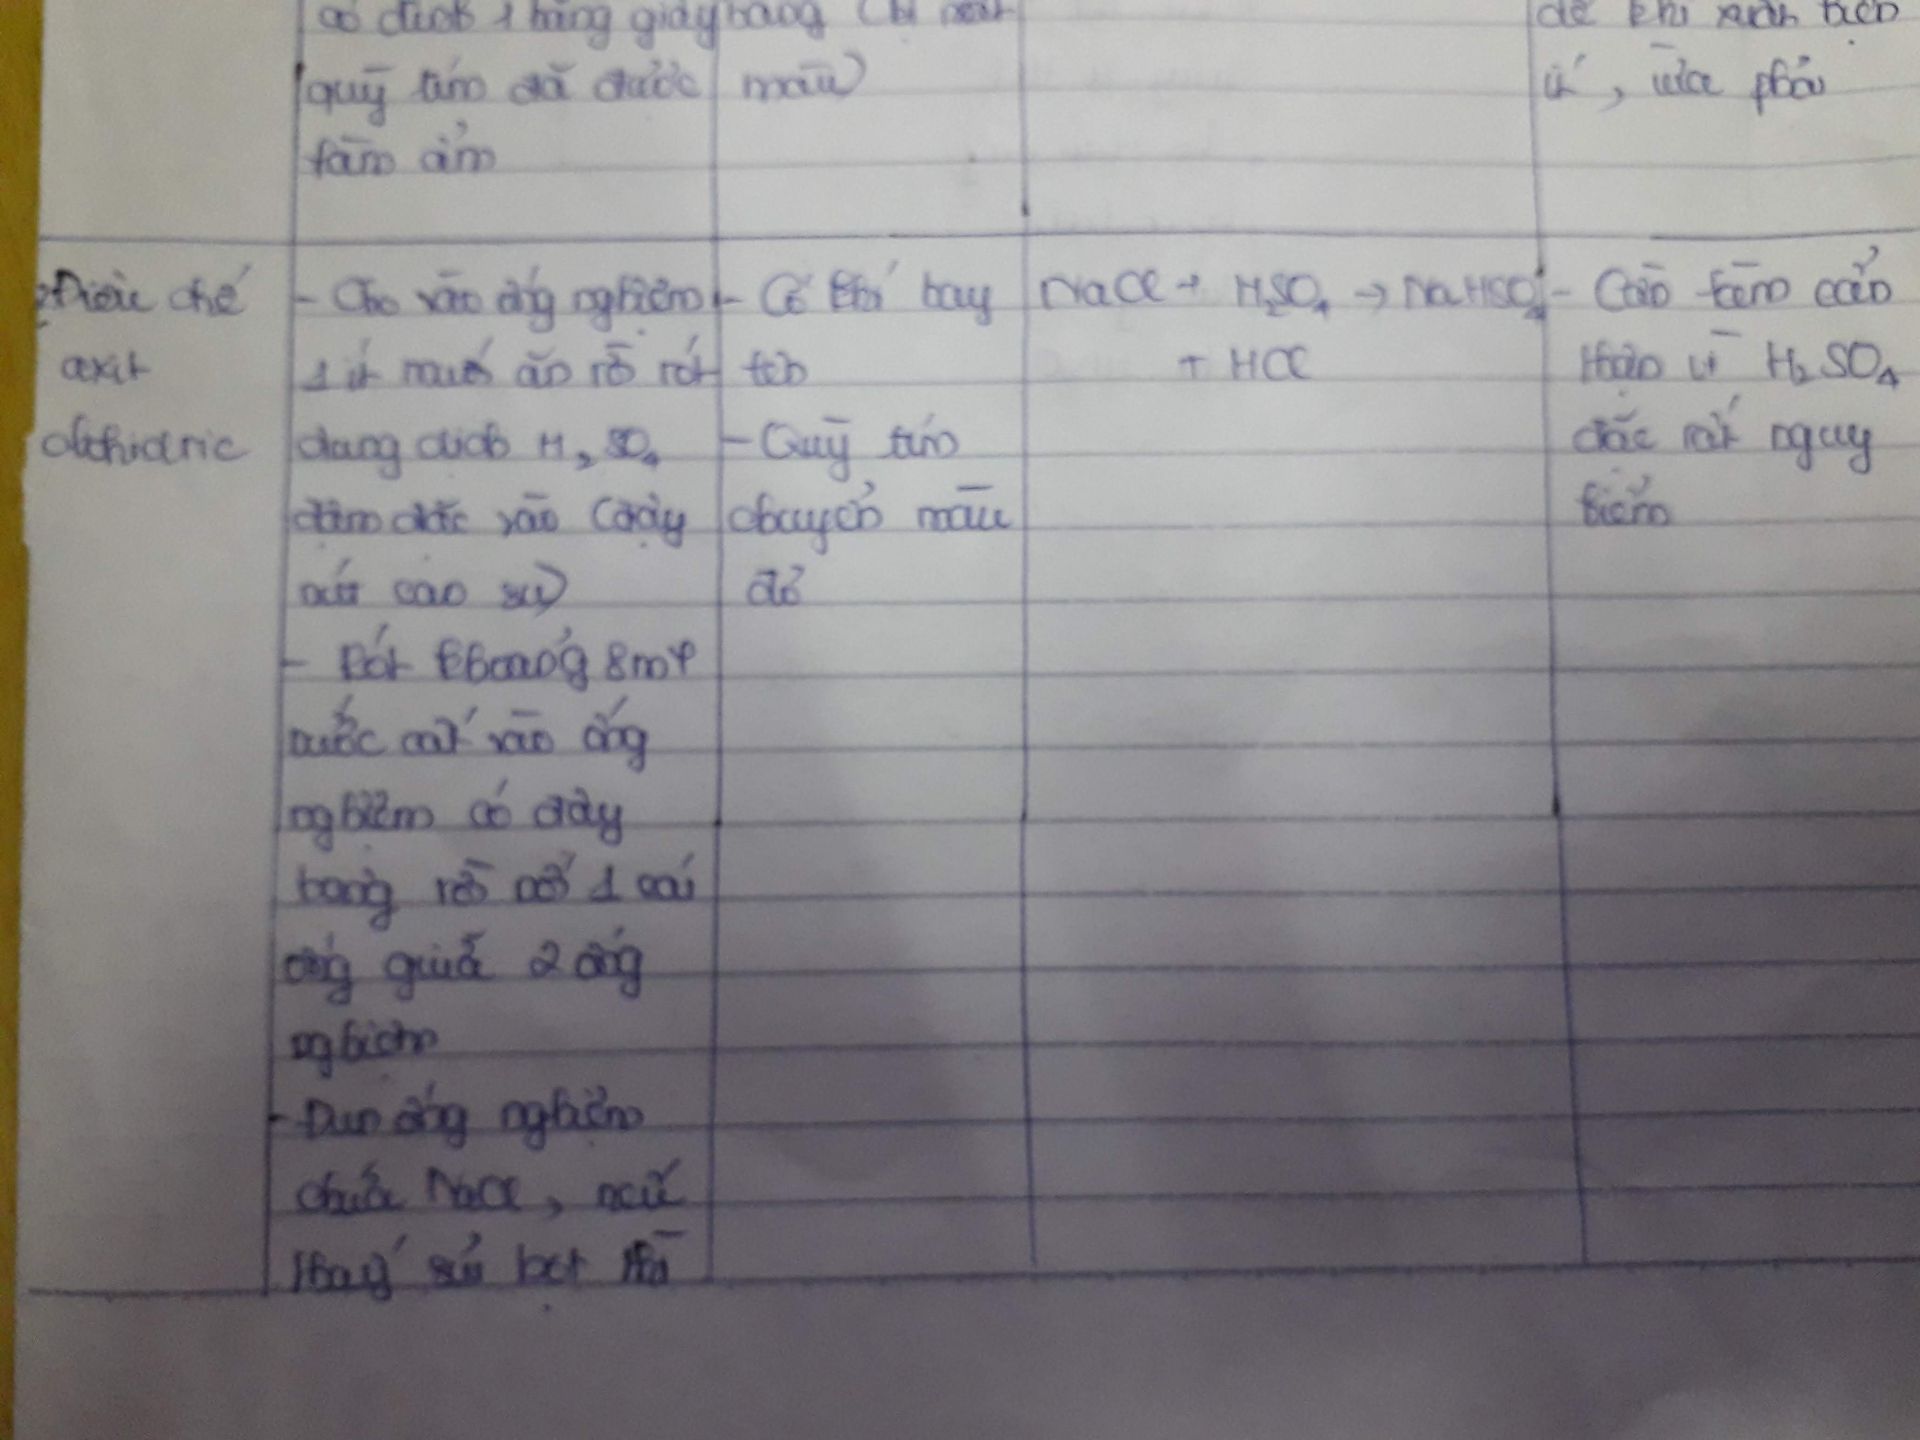 có đính 1 băng giấy trắng (bị mất
quỳ tím đã được màu)
tẩm ẩm
để khí xuất hiện
ít, vừa phải
2. Điều chế
axit
clohidric
- Cho vào ống nghiệm
1 ít muối ăn rồi rót
dung dịch H₂SO₄
đậm đặc vào (đậy
nút cao su)
- Rót khoảng 8ml
nước cất vào ống
nghiệm có đậy
bông rồi nối 1 cái
ống giữa 2 ống
nghiệm
- Đun ống nghiệm
chứa NaCl, nếu
thấy sủi bọt thì
- Có khí bay
lên
- Quỳ tím
chuyển màu
đỏ
NaCl + H₂SO₄ → NaHSO₄
+ HCl
- Cần làm cẩn
thận vì H₂SO₄
đặc rất nguy
hiểm